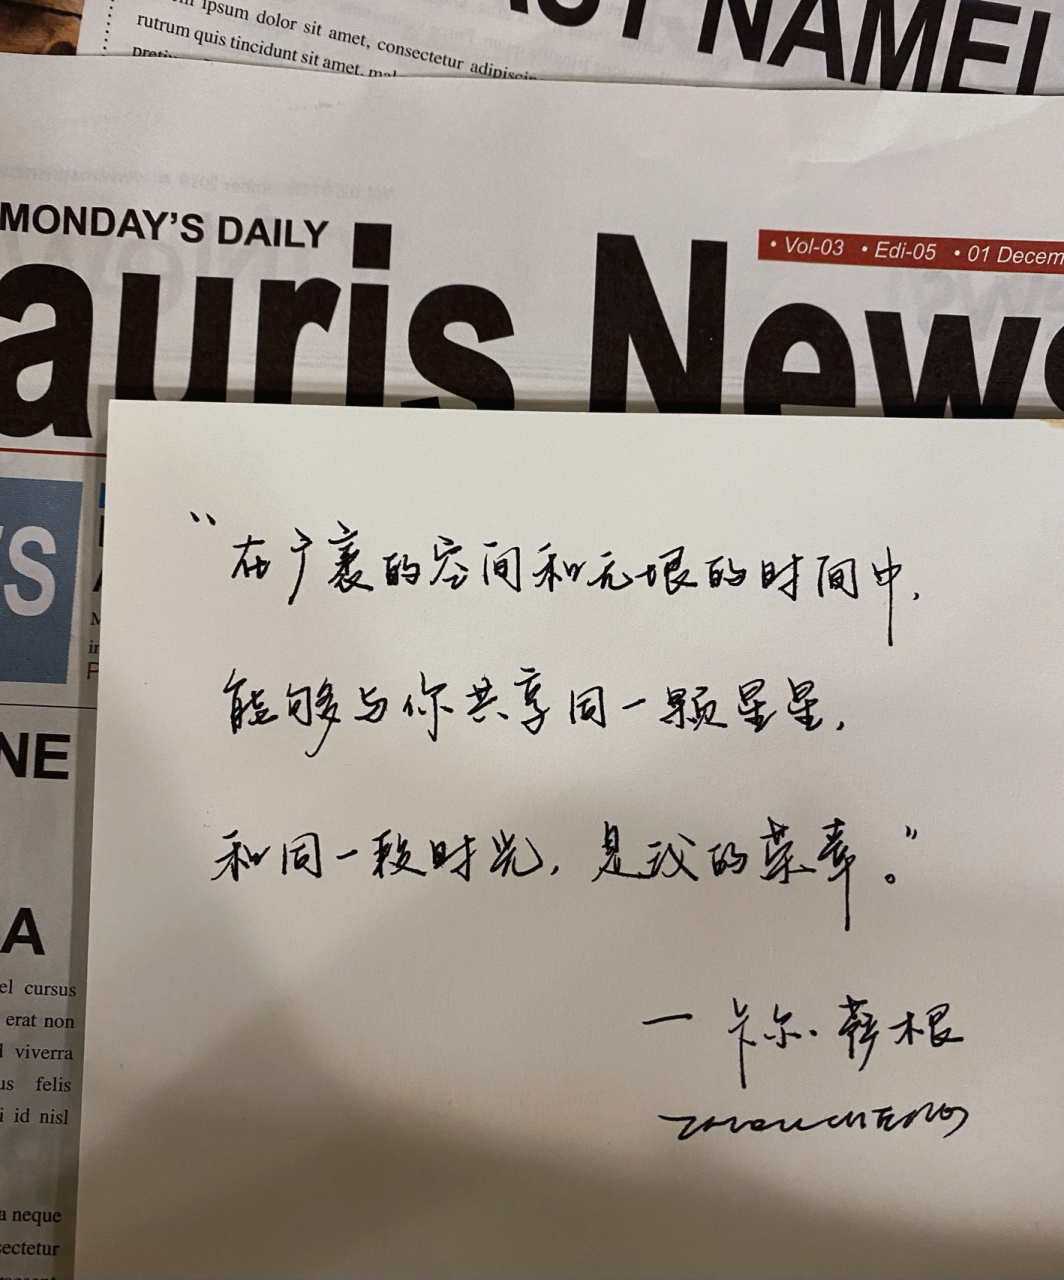 ipsum dolor sit amet, consectetur adipiscin
rutrum quis tincidunt sit amet, mal
NAMEL
MONDAY'S DAILY
• Vol-03 • Edi-05 • 01 Decem
auris News
S
NE
A
el cursus
erat non
viverra
us felis
i id nisl
a neque
sectetur
“在广袤的空间和无垠的时间中，
能够与你共享同一颗星星，
和同一段时光，是我的荣幸。”
一卡尔·萨根